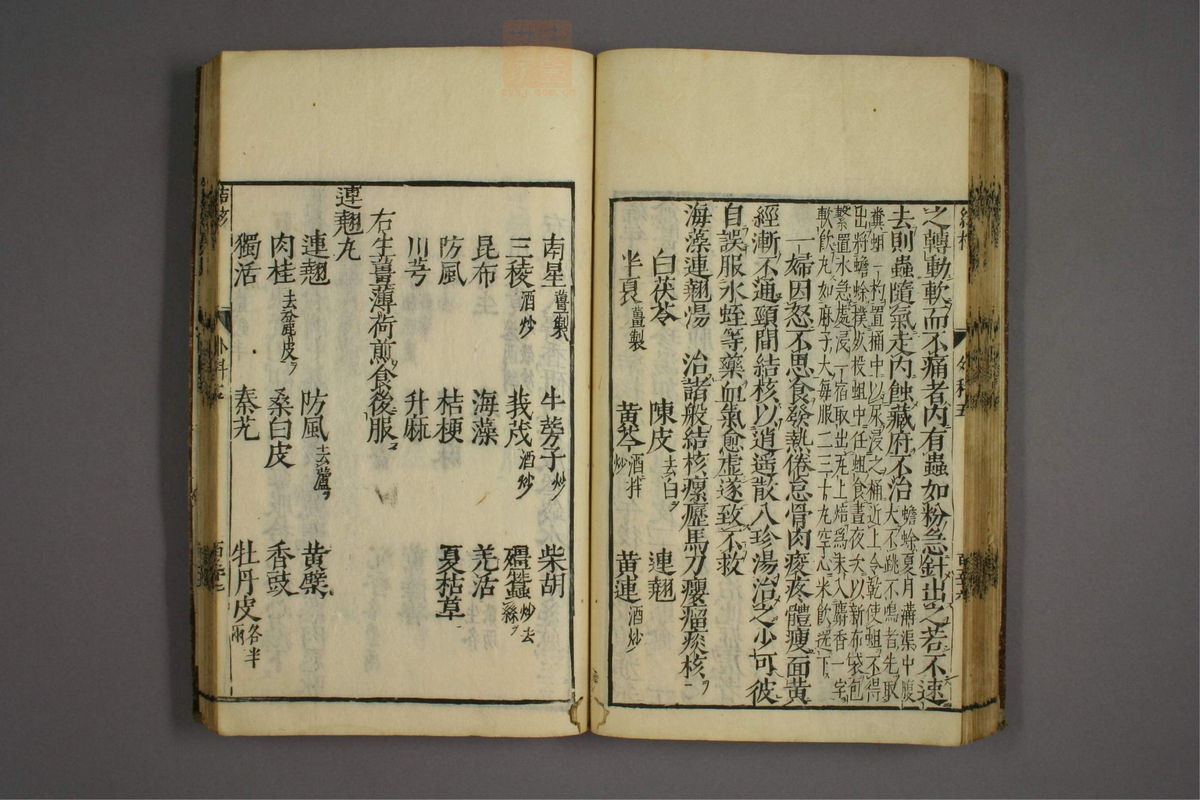 之轉動軟而不痛者内有蟲如粉急針出之若不速
去則蟲隨氣走内蝕臟府不治大不跳不鳴者先取
蟾蜍夏月溝渠中腹
糞蛆一杓置桶中以尿浸之桶近上令乾使蛆不得
出將蟾蜍撲奴投蛆中任蛆食晝夜次以新布袋包
繫置水急處浸一宿取出瓦上焙為末入麝香一字
軟飲丸如麻子大每服二三十丸空心米飲送下
一婦因怒不思食發熱倦怠骨肉痠疼體瘦面黄
經漸不通頸間結核以逍遥散八珍湯治之少可彼
自誤服水蛭等藥血氣愈虚遂致不救
海藻連翹湯 治諸般結核瘰癧馬刀癭瘤痰核
白茯苓 陳皮去白 連翹
半夏薑製 黄芩酒拌炒 黄連酒炒
外科五
南星薑製 牛蒡子炒 柴胡
三稜酒炒 莪茂酒炒 殭蠶炒去絲
昆布 海藻 羌活
防風 桔梗 夏枯草
川芎 升麻
右生薑薄荷煎食後服
連翹丸
連翹 防風去蘆 黄蘗
肉桂去麄皮 桑白皮 香豉
獨活 秦艽 牡丹皮各半兩
結核